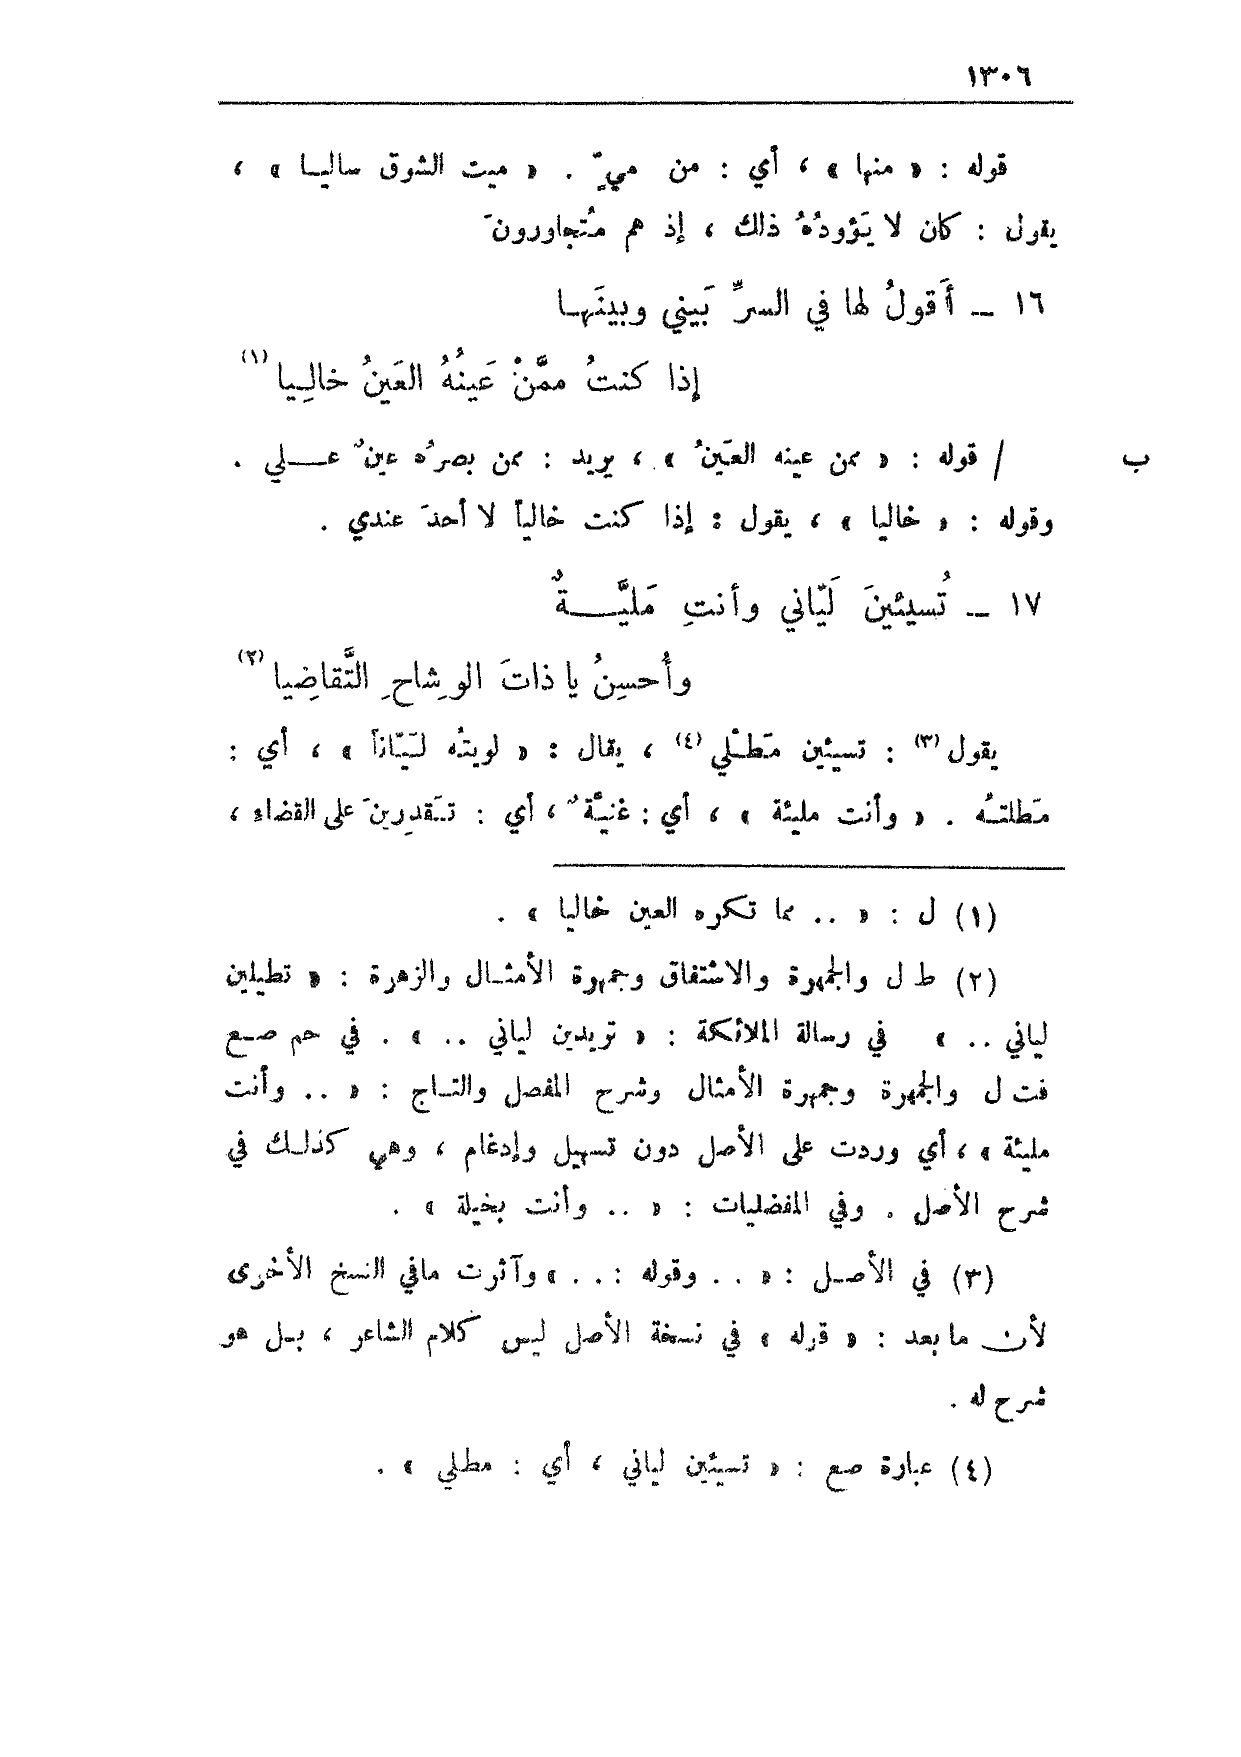 ١٣٠٦
قوله : « منها » ، أي : من ميٍّ . « ميت الشوق ساليـا » ،
يقول : كان لا يَؤودُهُ ذلك ، إذ هم مُتجاورونَ
١٦ ــ أَقولُ لها في السرِّ بَيني وبينَهـا
إذا كنتُ ممَّنْ عَينُهُ العَينُ خالِـيا (١)
ب / قوله : « ممن عينه العَينُ » ، يريد : ممن بصرُه عينٌ عـــلي .
وقوله : « خاليا » ، يقول : إذا كنت خالياً لا أحدَ عندي .
١٧ ــ تُسيئينَ لَيّاني وأنتِ مَليَّـــةٌ
وأُحسِنُ يا ذاتَ الوِشاحِ التَّقاضِيا (٢)
يقول (٣) : تسيئين مَطـْلي (٤) ، يقال : « لويتُه لـَيّاناً » ، أي :
مَطلتـُه . « وأنت مليئة » ، أي : غنيَّةٌ ، أي : تـَقدِرينَ على القضاء ،
(١) ل : « .. مما تكره العين خاليا » .
(٢) ط ل والجمهرة والاشتقاق وجمهرة الأمثـال والزهرة : « تطيلين
لياني .. » في رسالة الملائكة : « تريدين لياني .. » . في حم صـع
فت ل والجمهرة وجمهرة الأمثال وشرح المفصل والتـاج : « .. وأنت
مليئة » ، أي وردت على الأصل دون تسهيل وإدغام ، وهي كذلـك في
شرح الأصل . وفي المفضليات : « .. وأنت بخيلة » .
(٣) في الأصـل : « .. وقوله : .. » وآثرت مافي النسخ الأخرى
لأن ما بعد : « قوله » في نسخة الأصل ليس كلام الشاعر ، بـل هو
شرح له .
(٤) عبارة صع : « تسيئين لياني ، أي : مطلي » .